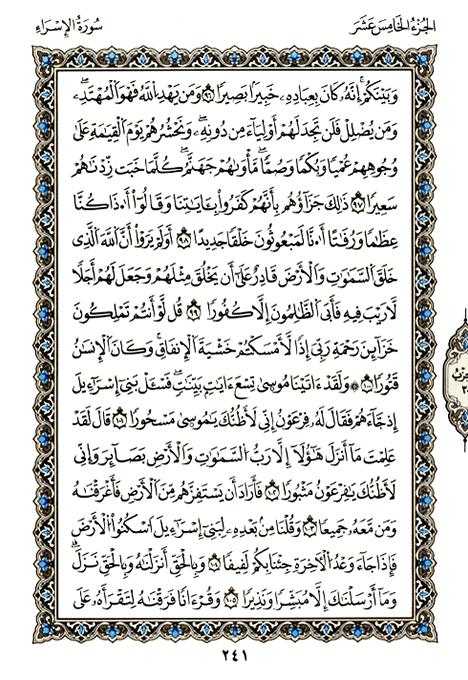 الجزء الخامس عشر
سورة الإسراء
وَبَيْنَكُمْ إِنَّهُۥ كَانَ بِعِبَادِهِۦ خَبِيرًۢا بَصِيرًا ٩٦ وَمَن يَهْدِ ٱللَّهُ فَهُوَ ٱلْمُهْتَدِ ۖ
وَمَن يُضْلِلْ فَلَن تَجِدَ لَهُمْ أَوْلِيَآءَ مِن دُونِهِۦ ۖ وَنَحْشُرُهُمْ يَوْمَ ٱلْقِيَٰمَةِ عَلَىٰ
وُجُوهِهِمْ عُمْيًا وَبُكْمًا وَصُمًّا ۖ مَّأْوَىٰهُمْ جَهَنَّمُ ۖ كُلَّمَا خَبَتْ زِدْنَٰهُمْ
سَعِيرًا ٩٧ ذَٰلِكَ جَزَآؤُهُم بِأَنَّهُمْ كَفَرُوا۟ بِـَٔايَٰتِنَا وَقَالُوٓا۟ أَءِذَا كُنَّا
عِظَٰمًا وَرُفَٰتًا أَءِنَّا لَمَبْعُوثُونَ خَلْقًا جَدِيدًا ٩٨ أَوَلَمْ يَرَوْا۟ أَنَّ ٱللَّهَ ٱلَّذِى
خَلَقَ ٱلسَّمَٰوَٰتِ وَٱلْأَرْضَ قَادِرٌ عَلَىٰٓ أَن يَخْلُقَ مِثْلَهُمْ وَجَعَلَ لَهُمْ أَجَلًا
لَّا رَيْبَ فِيهِ فَأَبَى ٱلظَّٰلِمُونَ إِلَّا كُفُورًا ٩٩ قُل لَّوْ أَنتُمْ تَمْلِكُونَ
خَزَآئِنَ رَحْمَةِ رَبِّىٓ إِذًا لَّأَمْسَكْتُمْ خَشْيَةَ ٱلْإِنفَاقِ ۚ وَكَانَ ٱلْإِنسَٰنُ
قَتُورًا ١٠٠ ۞ وَلَقَدْ ءَاتَيْنَا مُوسَىٰ تِسْعَ ءَايَٰتٍۭ بَيِّنَٰتٍ ۖ فَسْـَٔلْ بَنِىٓ إِسْرَٰٓءِيلَ
إِذْ جَآءَهُمْ فَقَالَ لَهُۥ فِرْعَوْنُ إِنِّى لَأَظُنُّكَ يَٰمُوسَىٰ مَسْحُورًا ١٠١ قَالَ لَقَدْ
عَلِمْتَ مَآ أَنزَلَ هَٰٓؤُلَآءِ إِلَّا رَبُّ ٱلسَّمَٰوَٰتِ وَٱلْأَرْضِ بَصَآئِرَ وَإِنِّى
لَأَظُنُّكَ يَٰفِرْعَوْنُ مَثْبُورًا ١٠٢ فَأَرَادَ أَن يَسْتَفِزَّهُم مِّنَ ٱلْأَرْضِ فَأَغْرَقْنَٰهُ
وَمَن مَّعَهُۥ جَمِيعًا ١٠٣ وَقُلْنَا مِنۢ بَعْدِهِۦ لِبَنِىٓ إِسْرَٰٓءِيلَ ٱسْكُنُوا۟ ٱلْأَرْضَ
فَإِذَا جَآءَ وَعْدُ ٱلْءَاخِرَةِ جِئْنَا بِكُمْ لَفِيفًا ١٠٤ وَبِٱلْحَقِّ أَنزَلْنَٰهُ وَبِٱلْحَقِّ نَزَلَ ۗ
وَمَآ أَرْسَلْنَٰكَ إِلَّا مُبَشِّرًا وَنَذِيرًا ١٠٥ وَقُرْءَانًا فَرَقْنَٰهُ لِتَقْرَأَهُۥ عَلَى
٢٤١